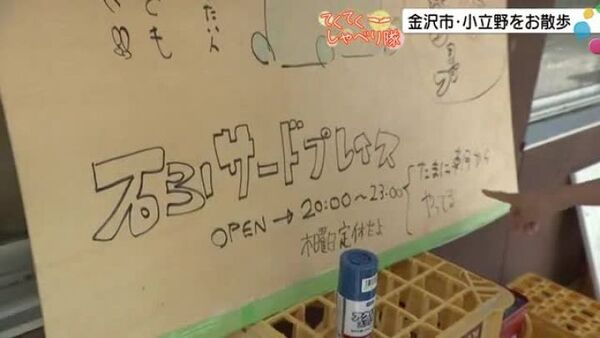 てくてく
しゃべり隊
金沢市・小立野をお散歩
たいん
とも
石引サードプレイス
OPEN→20:00~23:00
たまに朝から
やってる
木曜日定休だよ